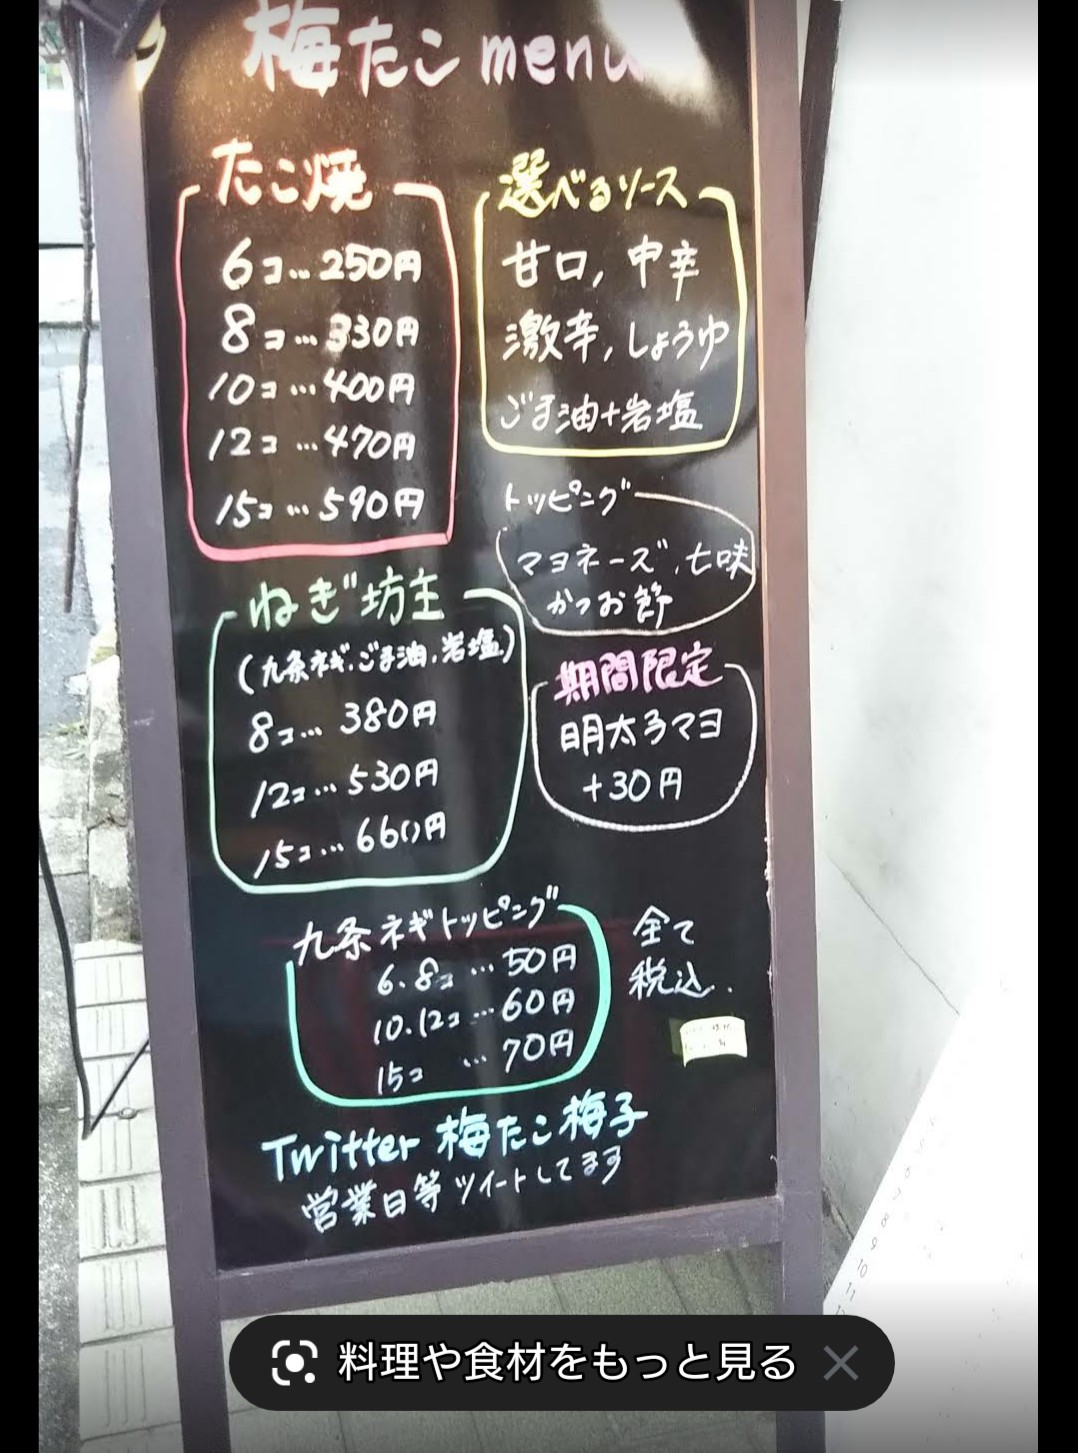 梅たこ menu
たこ焼
6コ…250円
8コ…330円
10コ…400円
12コ…470円
15コ…590円
選べるソース
甘口, 中辛
激辛, しょうゆ
ごま油+岩塩
トッピング
マヨネーズ、七味
かつお節
ねぎ坊主
(九条ネギ、ごま油、岩塩)
8コ…380円
12コ…530円
15コ…660円
期間限定
明太子マヨ
+30円
九条ネギトッピング
6.8コ…50円
10.12コ…60円
15コ …70円
全て
税込.
Twitter 梅たこ梅子
営業日等ツイートしてます
料理や食材をもっと見る